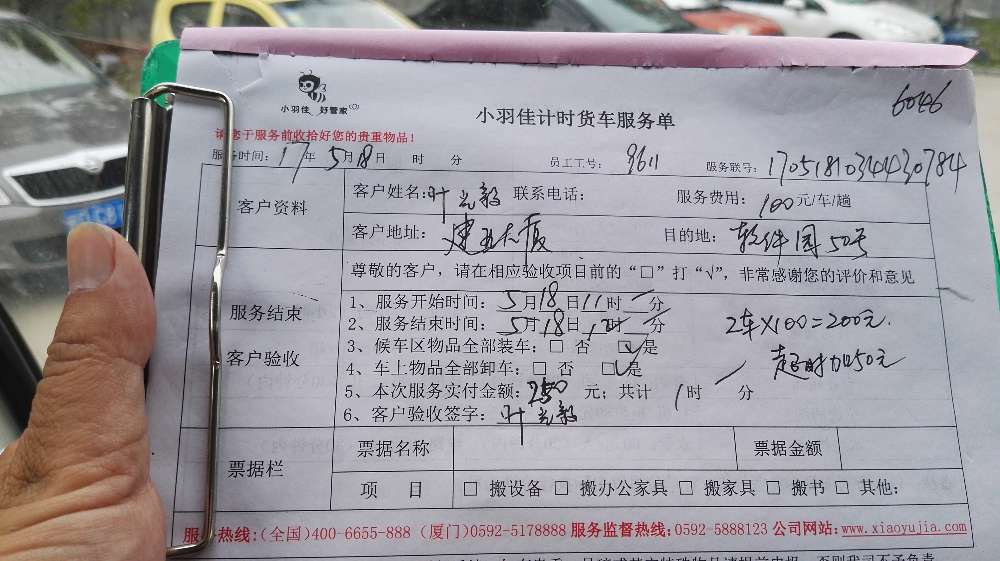 小羽佳 好管家
6046
小羽佳计时货车服务单
请您于服务前收拾好您的贵重物品!
服务时间: 17年 5月18日 时 分 员工工号: 9611 服务联号: 17051810344430784
客户资料
客户姓名: 叶志毅 联系电话: 服务费用: 100元/车/趟
客户地址: 大厦 目的地: 软件园50号
尊敬的客户,请在相应验收项目前的“□”打“√”,非常感谢您的评价和意见
服务结束
客户验收
1、服务开始时间: 5月18日11时 分
2、服务结束时间: 5月18日12时 分
3、候车区物品全部装车: □ 否 ☑是
4、车上物品全部卸车: □ 否 ☑是
5、本次服务实付金额: 250 元; 共计 1时 分
6、客户验收签字: 叶志毅
2车×100=200元.
超时加50元
票据栏
票据名称 票据金额
项 目 □ 搬设备 □ 搬办公家具 □ 搬家具 □ 搬书 □ 其他:
服务热线:(全国)400-6655-888 (厦门)0592-5178888 服务监督热线: 0592-5888123 公司网站: www.xiaoyujia.com